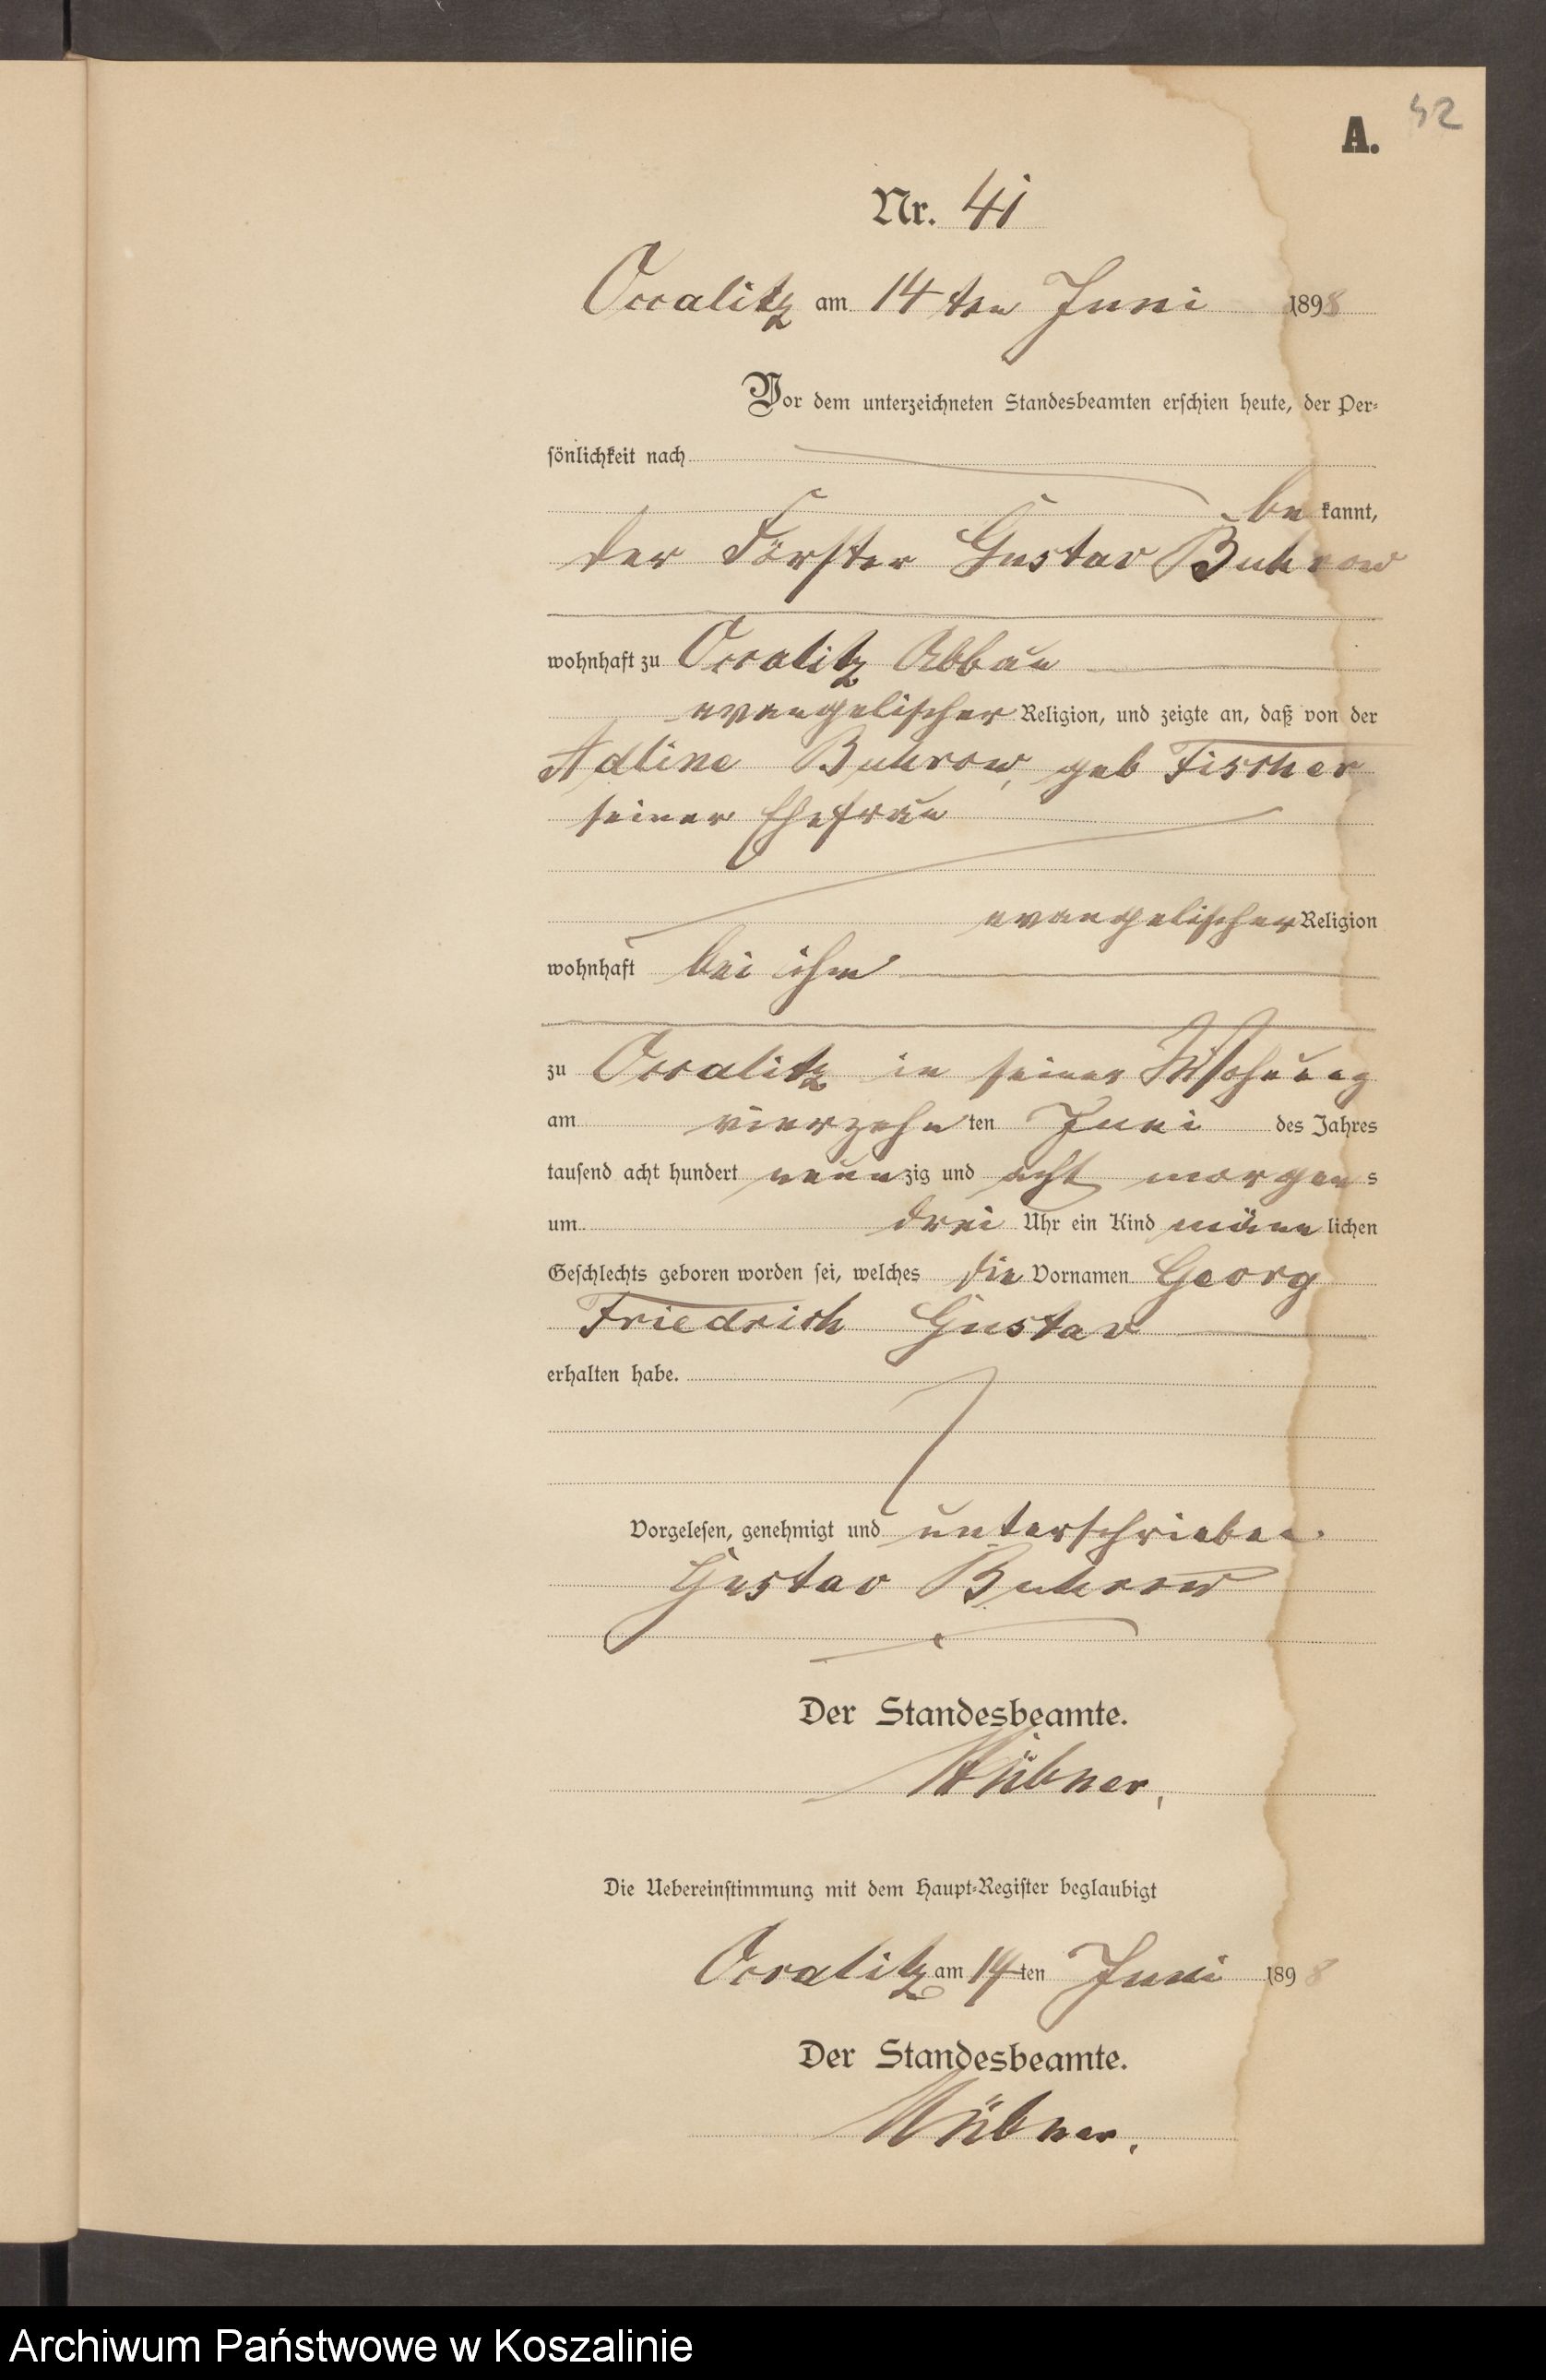 42
A.
Nr. 41
Occalitz am 14ten Juni 1898
Vor dem unterzeichneten Standesbeamten erschien heute, der Per-
sönlichkeit nach
be kannt,
der Förster Gustav Buhrow
wohnhaft zu Occalitz Abbau
evangelischer Religion, und zeigte an, daß von der
Adline Buhrow, geb Fischer
seiner Ehefrau
evangelischer Religion
wohnhaft bei ihm
zu Occalitz in seiner Wohnung
am vierzehn ten Juni des Jahres
tausend acht hundert neun zig und acht morgen s
um drei Uhr ein Kind männ lichen
Geschlechts geboren worden sei, welches die Vornamen Georg
Friedrich Gustav
erhalten habe.
Vorgelesen, genehmigt und unterschrieben.
Gustav Buhrow
Der Standesbeamte.
Hübner,
Die Uebereinstimmung mit dem Haupt-Register beglaubigt
Occalitz am 14ten Juni 1898
Der Standesbeamte.
Hübner,
Archiwum Państwowe w Koszalinie